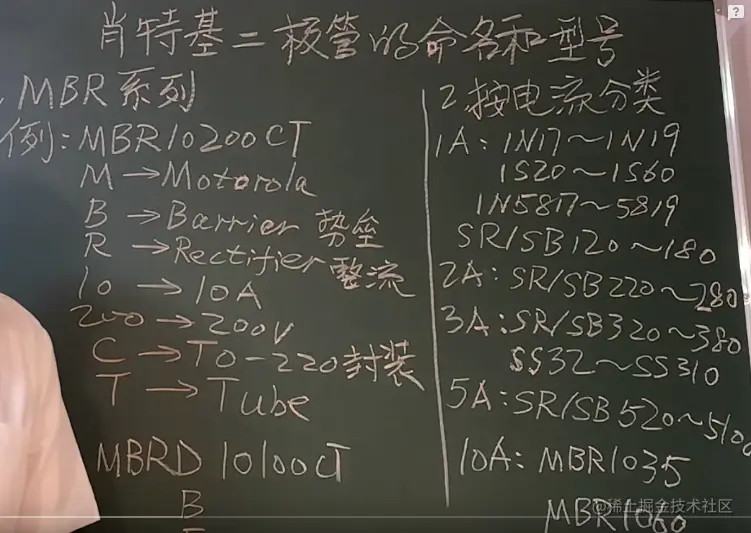 肖特基二极管的命名和型号
MBR系列
例:MBR10200CT
M→Motorola
B→Barrier 势垒
R→Rectifier 整流
10→10A
200→200V
C→TO-220封装
T→Tube
MBRD 10100CT
B
2.按电流分类
1A:1N17~1N19
1S20~1S60
1N5817~5819
SR/SB120~180
2A:SR/SB220~280
3A:SR/SB320~380
SS32~SS310
5A:SR/SB520~5100
10A:MBR1035
MBR1060
@稀土掘金技术社区